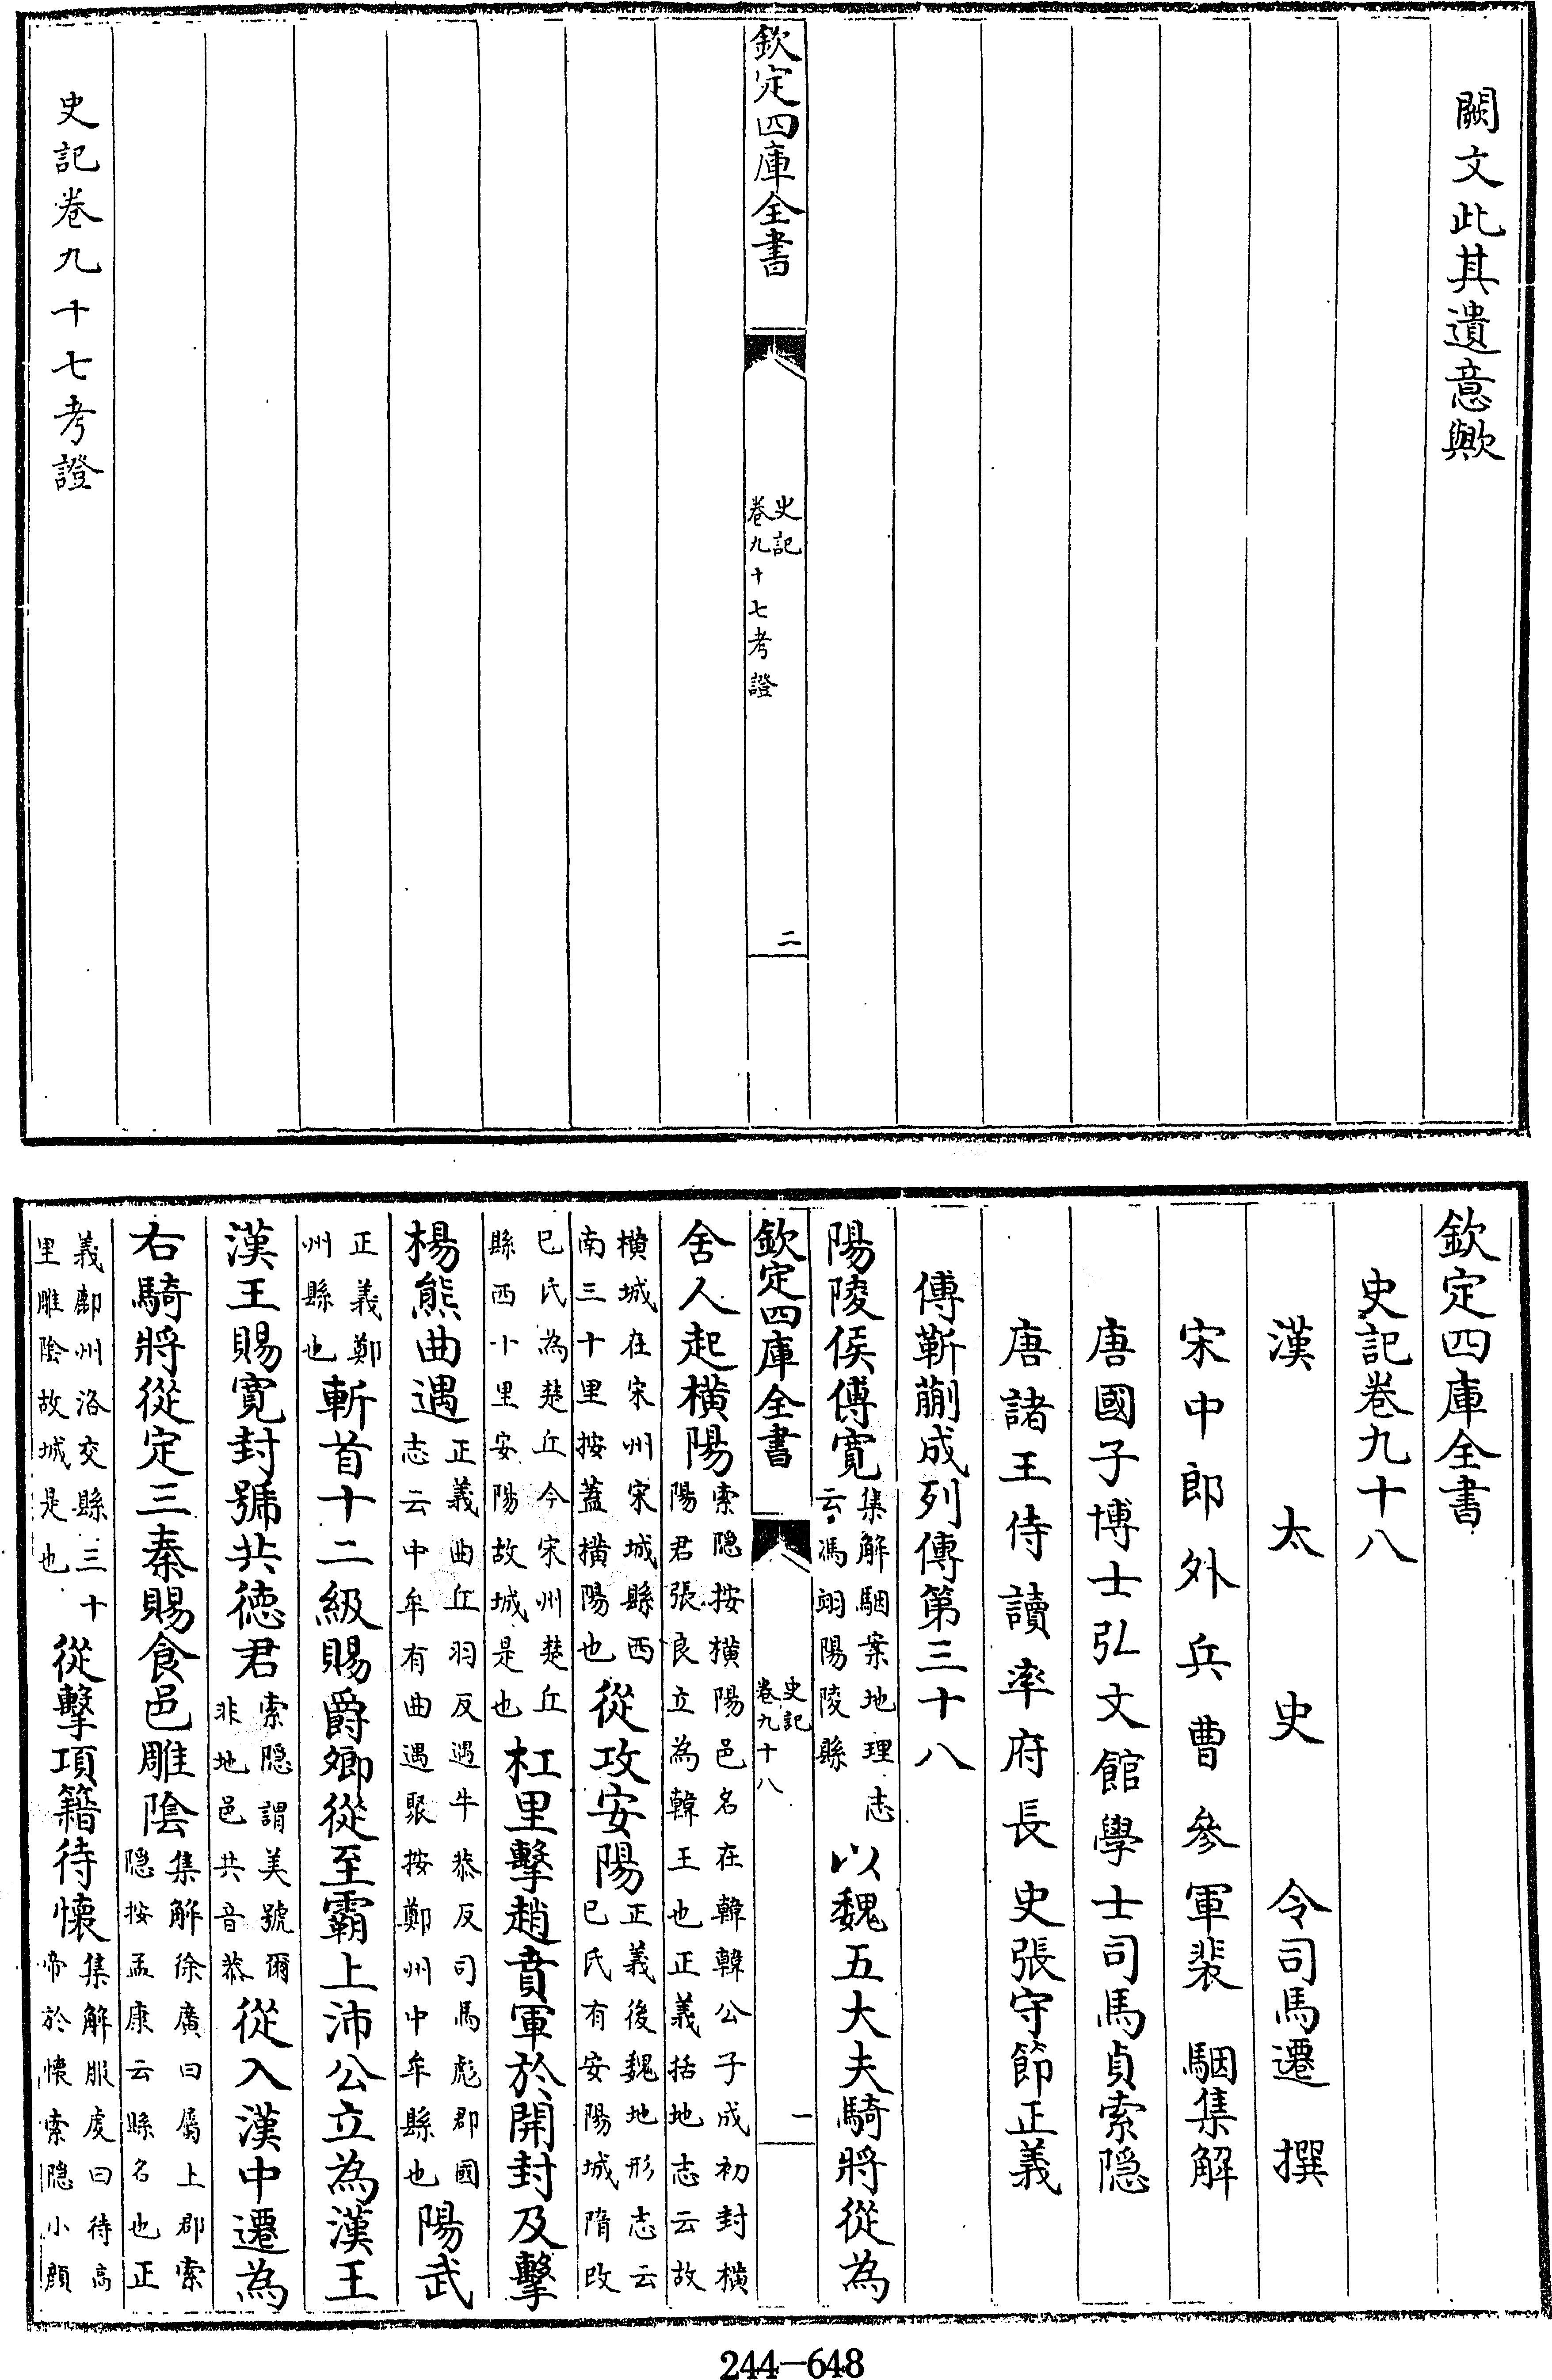 闕文此其遺意歟
欽定四庫全書
史記
卷九十七考證
二
史記卷九十七考證
欽定四庫全書
史記卷九十八
漢太史令司馬遷撰
宋中郎外兵曹參軍裴駰集解
唐國子博士弘文館學士司馬貞索隱
唐諸王侍讀率府長史張守節正義
傅靳蒯成列傳第三十八
陽陵侯傅寬集解駰案地理志云馮翊陽陵縣以魏五大夫騎將從為
欽定四庫全書
史記
卷九十八
一
舍人起橫陽索隱按橫陽邑名在韓韓公子成初封橫陽君張良立為韓王也正義括地志云故
橫城在宋州宋城縣西南三十里按蓋橫陽也從攻安陽正義後魏地形志云己氏有安陽城隋改
己氏為楚丘今宋州楚丘縣西小里安陽故城是也杠里擊趙賁軍於開封及擊
楊熊曲遇正義曲丘羽反遇牛恭反司馬彪郡國志云中牟有曲遇聚按鄭州中牟縣也陽武
正義鄭州縣也斬首十二級賜爵卿從至霸上沛公立為漢王
漢王賜寬封號共德君索隱謂美號爾非地邑共音恭從入漢中遷為
右騎將從定三秦賜食邑雕陰集解徐廣曰屬上郡索隱按孟康云縣名也正
義鄜州洛交縣三十里雕陰故城是也從擊項籍待懷集解服虔曰待高帝於懷索隱小顔
244-648